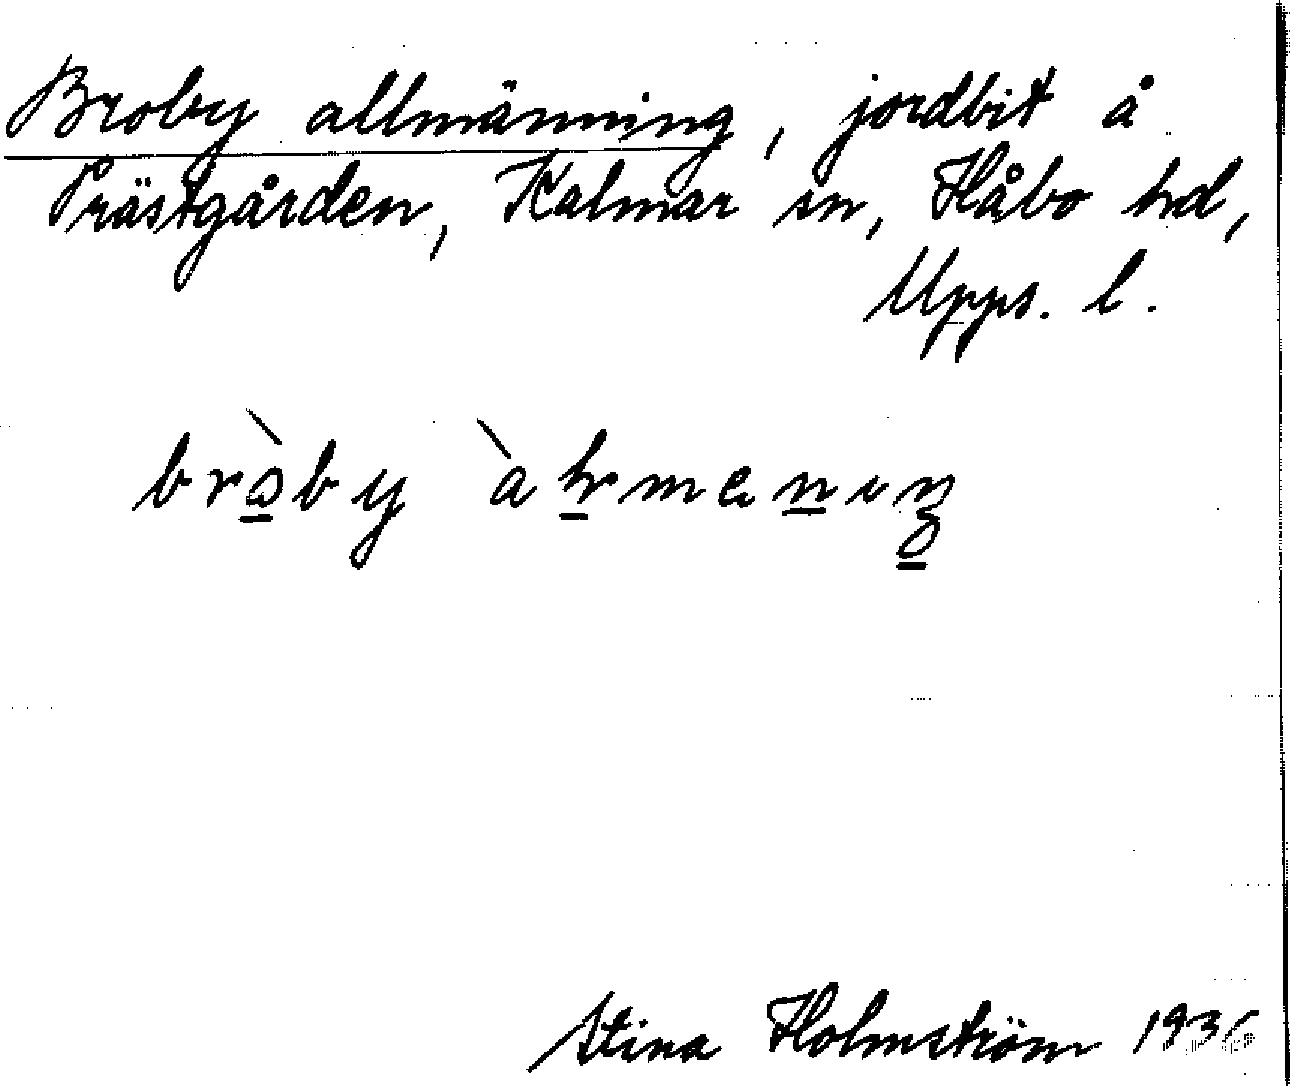 Broby allmänning, jordbit å
Prästgården, Kalmar sn, Håbo hd,
Upps. l.
Stina Holmström 1936